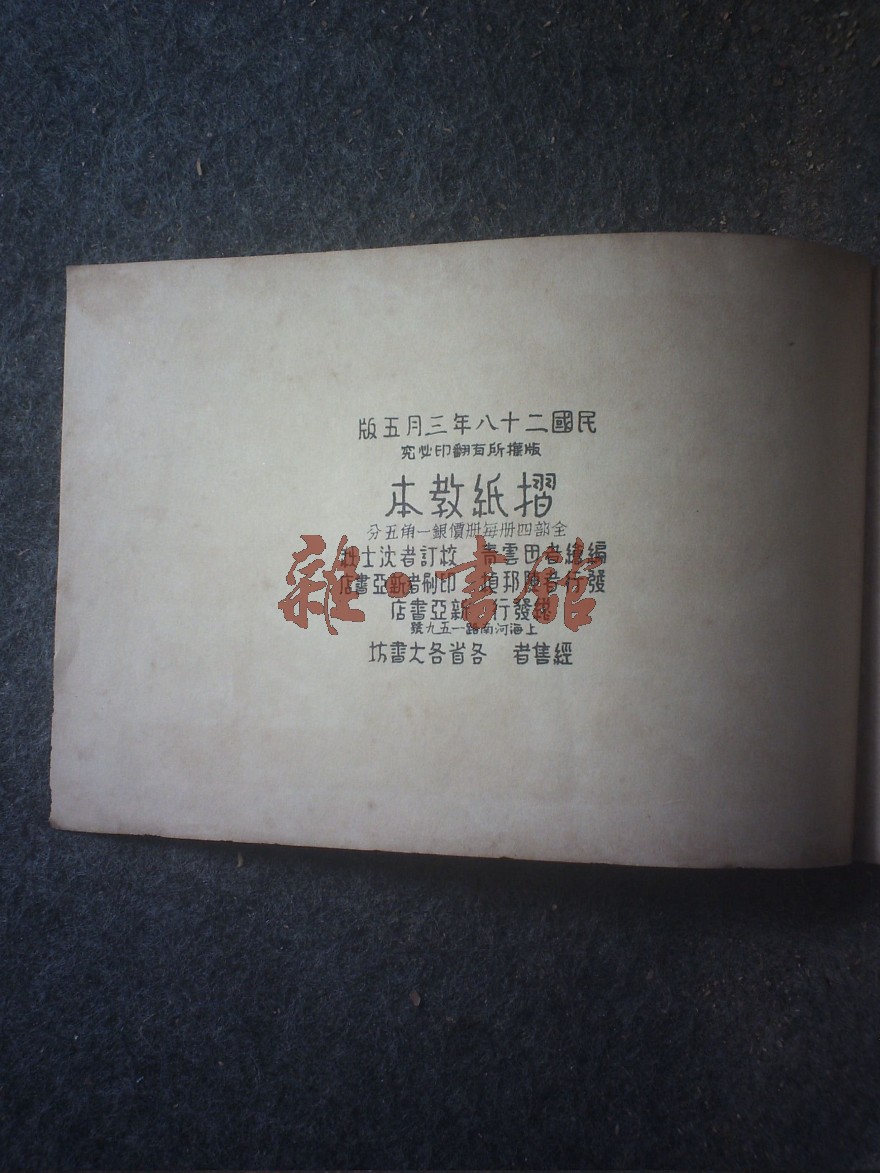 民國二十八年三月五版
版權所有翻印必究
摺紙教本
全部四冊每冊價銀一角五分
編繪者田雲青 校訂者沈士秋
發行者陳邦楨 印刷者新亞書店
總發行 新亞書店
上海河南路一五九號
經售者 各省各大書坊
雜·書館